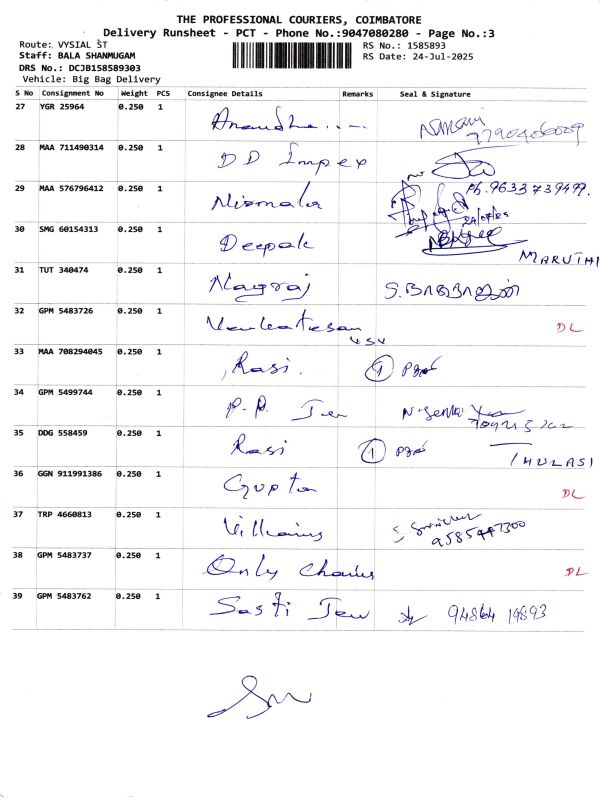 THE PROFESSIONAL COURIERS, COIMBATORE
Delivery Runsheet - PCT - Phone No.:9047080280 - Page No.:3
Route: VYSIAL ST
RS No.: 1585893
Staff: BALA SHANMUGAM
RS Date: 24-Jul-2025
DRS No.: DCJB158589303
Vehicle: Big Bag Delivery
S No Consignment No Weight PCS Consignee Details Remarks Seal & Signature
27 YGR 25964 0.250 1
28 MAA 711490314 0.250 1 DD Impex
29 MAA 576796412 0.250 1 Nirmala Ph.9633739499.
30 SMG 60154313 0.250 1 Deepak
MARUTHI
31 TUT 340474 0.250 1 Nagraj
32 GPM 5483726 0.250 1 Venkatesan DL
33 MAA 708294045 0.250 1 Rasi. 1
34 GPM 5499744 0.250 1 P.P. Jew
35 DDG 558459 0.250 1 Rasi 1
THULASI
36 GGN 911991386 0.250 1 Gupta DL
37 TRP 4660813 0.250 1 Villiams 9585447300
38 GPM 5483737 0.250 1 Only Chains DL
39 GPM 5483762 0.250 1 Sasti Jew 94864 19893